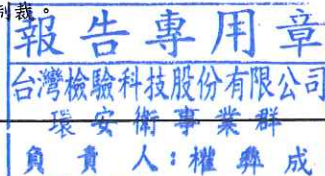 制裁。
報告專用章
台灣檢驗科技股份有限公司
環安衛事業群
負責人：權彝成